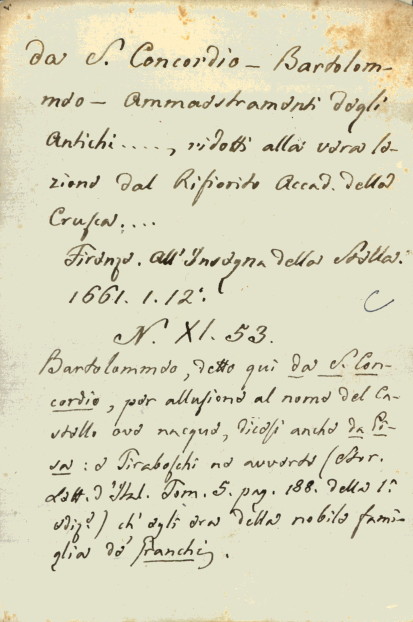 da S. Concordio - Bartolom-
meo - Ammaestramenti degli
Antichi....., ridotti alla vera le-
zione dal Rifiorito Accad. della
Crusca....
Firenze. all'Insegna della Stella.
1661. 1. 12°.
N. XI. 53.
Bartolommeo, detto qui da S. Con-
cordio, per allusione al nome del Ca-
stello ove nacque, dicesi anche da Pi-
sa: e Tiraboschi ne avverte (Stor.
Lett. d'Ital. Tom. 5. pag. 188. della 1ª
ediz.e) ch'egli era della nobile fami-
glia de' Granchi.